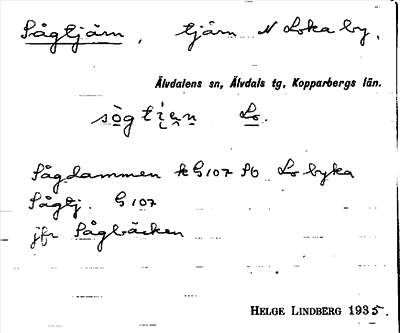 Sågtjärn, tjärn N Loka by,
Älvdalens sn, Älvdals tg, Kopparbergs län.
sògtiẹn Lo.
Sågdammen k G107 Sb Lo byka
Sågtj. G107
jfr Sågbäcken
HELGE LINDBERG 1935.